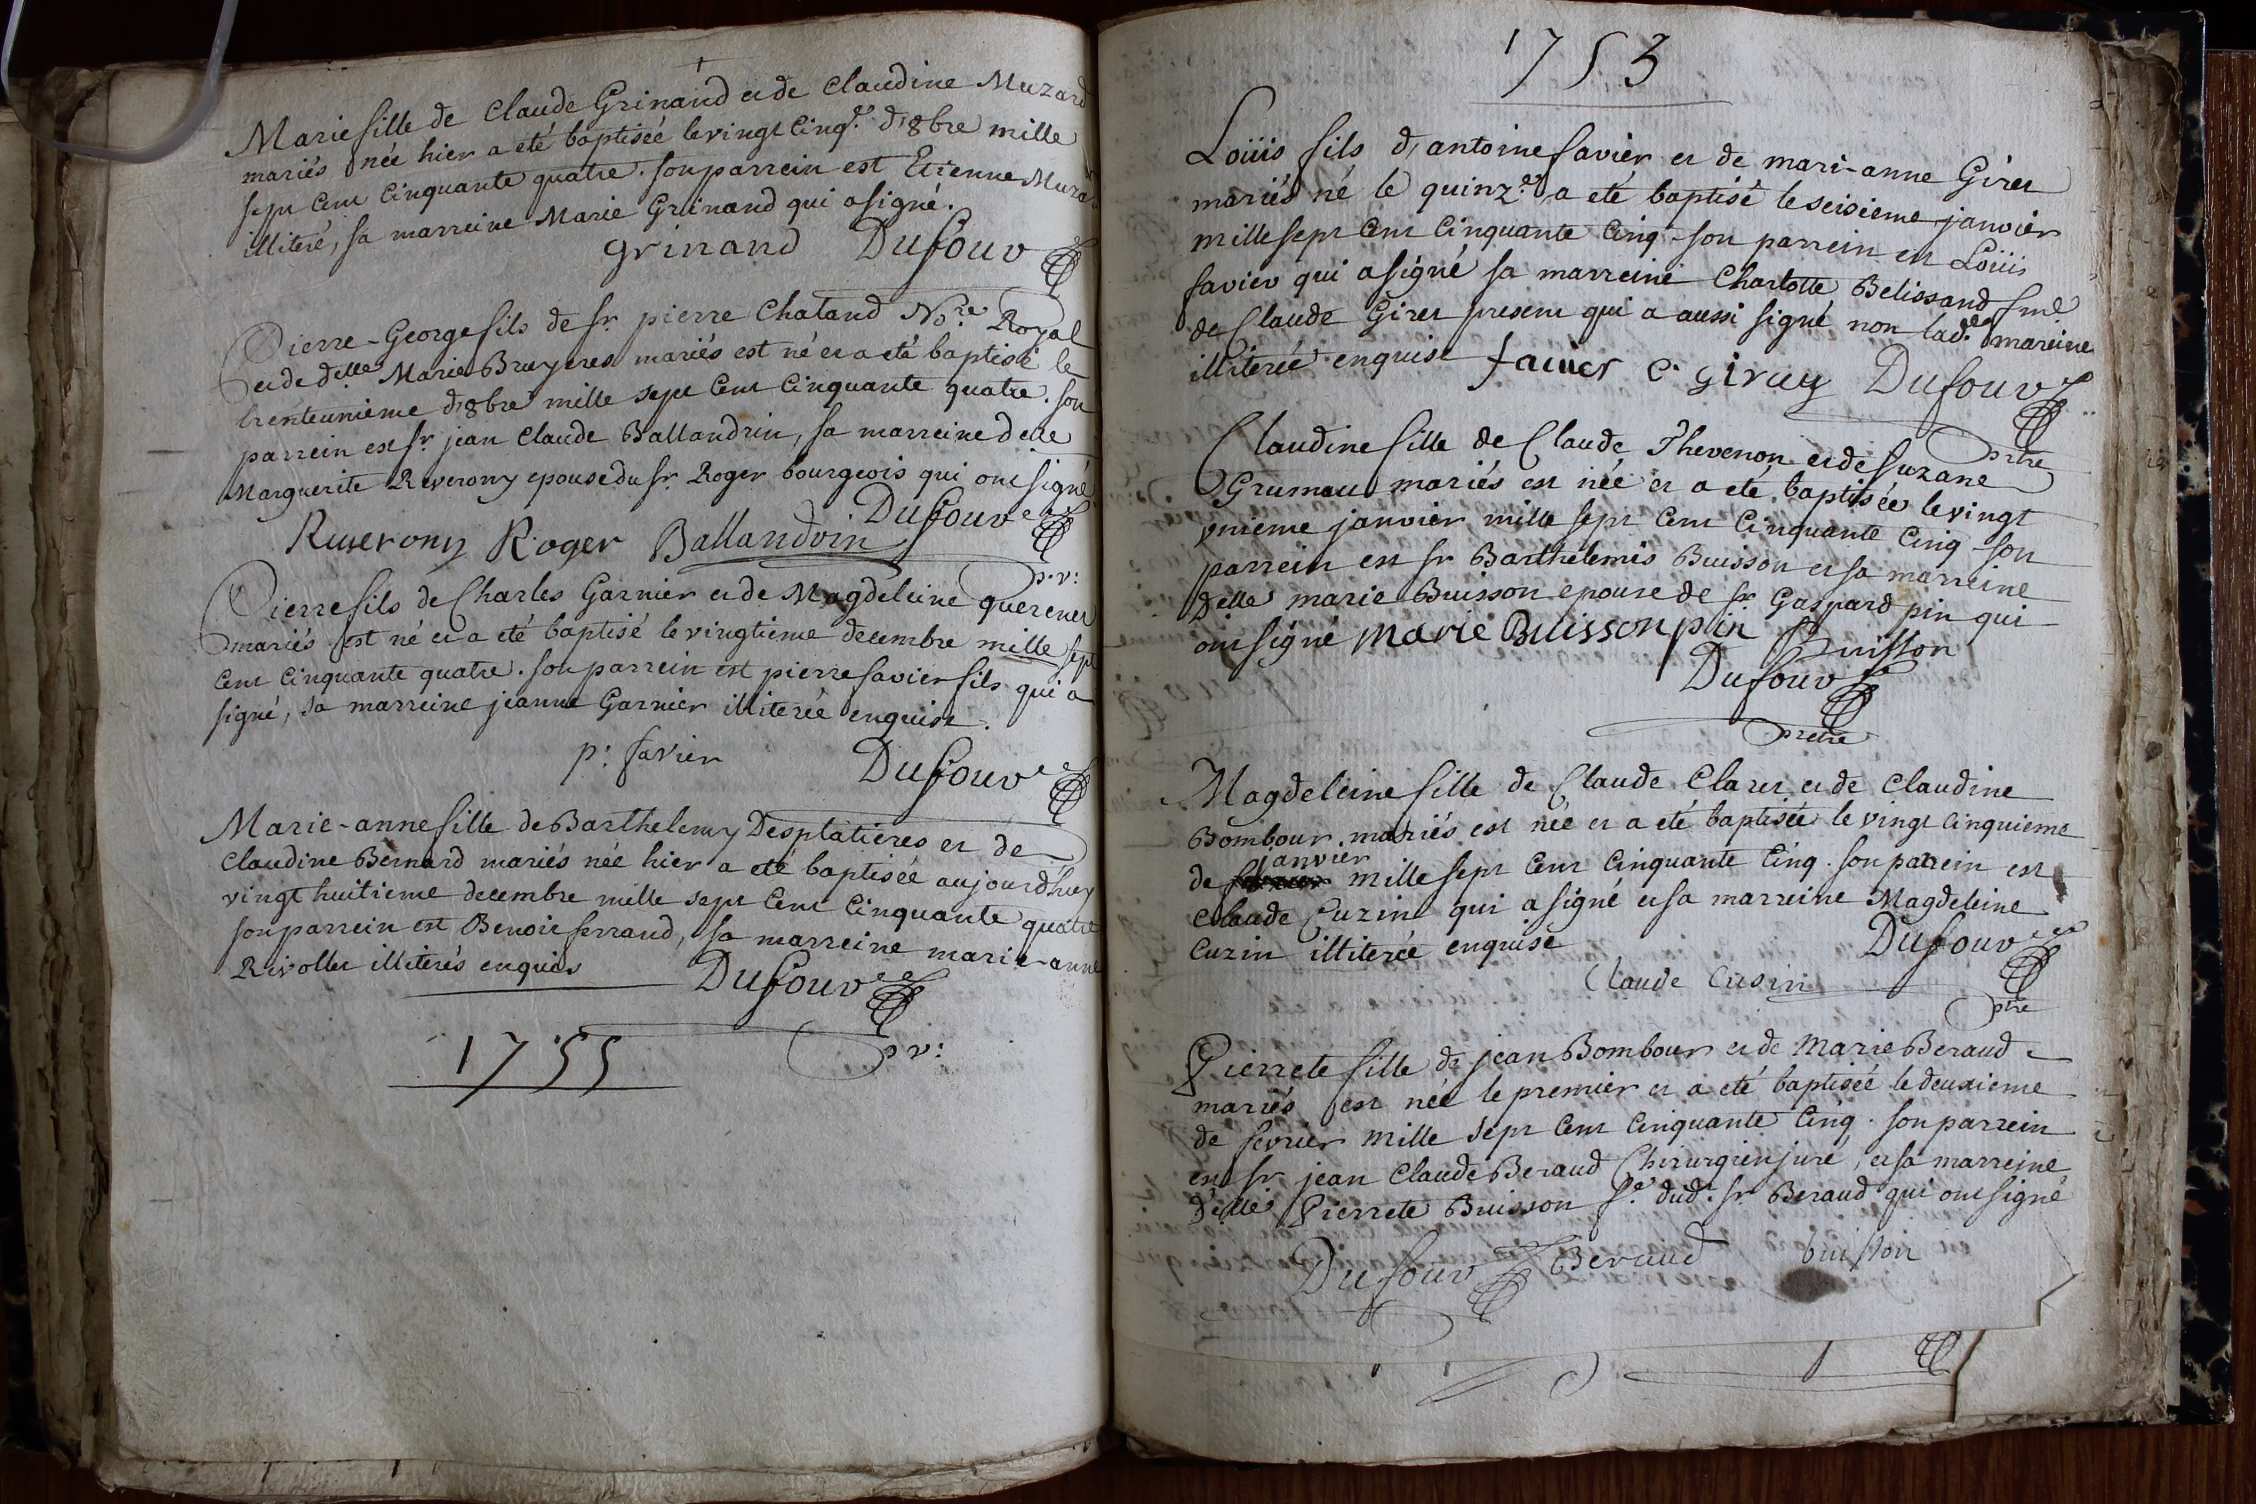 Marie fille de Claude Grinand et de Claudine Muzard
mariés née hier a eté baptisée le vingt cinq.e d'8bre mille
sept cent cinquante quatre. son parrein est Etienne Muzard
illiteré, sa marreine Marie Grinand qui a signé.
grinand Dufour
Pierre-George fils de Sr. pierre Chatand No.re Royal
et de delle Marie Bruyeres mariés est né et a eté baptisé le
trente unieme d'8bre mille sept cent cinquante quatre. son
parrein est Sr. jean Claude Ballandrin, sa marreine delle
Marguerite Reverony epouse du Sr. Roger bourgeois qui ont signé
Dufour
Ruverony Roger Ballandrin
p.r:
Pierre fils de Charles Garnier et de Magdeleine querenet
mariés est né et a eté baptisé le vingtieme decembre mille sept
cent cinquante quatre. son parrein est pierre favier fils qui a
signé, sa marreine jeanne Garnier illiterée enquise.
p: favier Dufour
Marie-anne fille de Barthelemy Desplatieres et de
Claudine Bernard mariés née hier a eté baptisée aujourd'huy
vingt huitieme decembre mille sept cent cinquante quatre
son parrein est Benoit ferraud, sa marreine marie-anne
Rivollet illiterés enquis Dufour
p r:
1755
1753
Loüis fils d'antoine favier et de mari-anne Giret
mariés né le quinz.e, a eté baptisé le seisieme janvier
mille sept cent cinquante cinq. son parrein est Loüis
favier qui a signé sa marreine Charlotte Belissand fme
de Claude Giret present qui a aussi signé non lad.e mareine
illiterée enquise favier C. giray Dufour
ptre
Claudine fille de Claude Thevenon et de Suzane
Grumeau mariés est née et a eté baptisée le vingt
unieme janvier mille sept cent cinquante cinq son
parrein est Sr Barthelemis Buisson et sa marreine
Delle marie Buisson epouse de Sr Gaspard pin qui
ont signé marie Buisson pin Buisson
Dufour
pretre
Magdeleine fille de Claude Claret et de Claudine
Bombour mariés est née et a eté baptisée le vingt cinquieme
de janvier mille sept cent cinquante cinq. son parrein est
Claude Cuzin qui a signé et sa marreine Magdeleine
Cuzin illiterée enquise Dufour
Claude Cusin
ptre
Pierrete fille de jean Bombour et de Marie Beraud
mariés est née le premier et a eté baptisée le deuxieme
de fevrier mille sept cent cinquante cinq. son parrein
est Sr jean Claude Beraud Chirurgien juré, et sa marreine
delle Pierrete Buisson f.e dud.t Sr Beraud qui ont signé
Dufour Beraud buisson